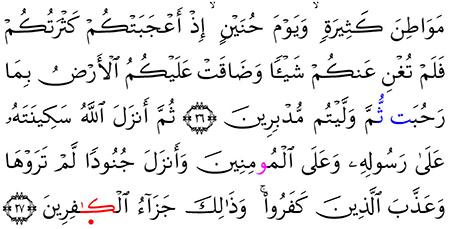 مَوَاطِنَ كَثِيرَةٍ ۙ وَيَوْمَ حُنَيْنٍ ۙ إِذْ أَعْجَبَتْكُمْ كَثْرَتُكُمْ
فَلَمْ تُغْنِ عَنكُمْ شَيْـًٔا وَضَاقَتْ عَلَيْكُمُ ٱلْأَرْضُ بِمَا
رَحُبَت ثُّمَّ وَلَّيْتُم مُّدْبِرِينَ ﴿٢٦﴾ ثُمَّ أَنزَلَ ٱللَّهُ سَكِينَتَهُۥ
عَلَىٰ رَسُولِهِۦ وَعَلَى ٱلْمُومِنِينَ وَأَنزَلَ جُنُودًا لَّمْ تَرَوْهَا
وَعَذَّبَ ٱلَّذِينَ كَفَرُوا۟ ۚ وَذَٰلِكَ جَزَآءُ ٱلْكَـٰفِرِينَ ﴿٢٧﴾